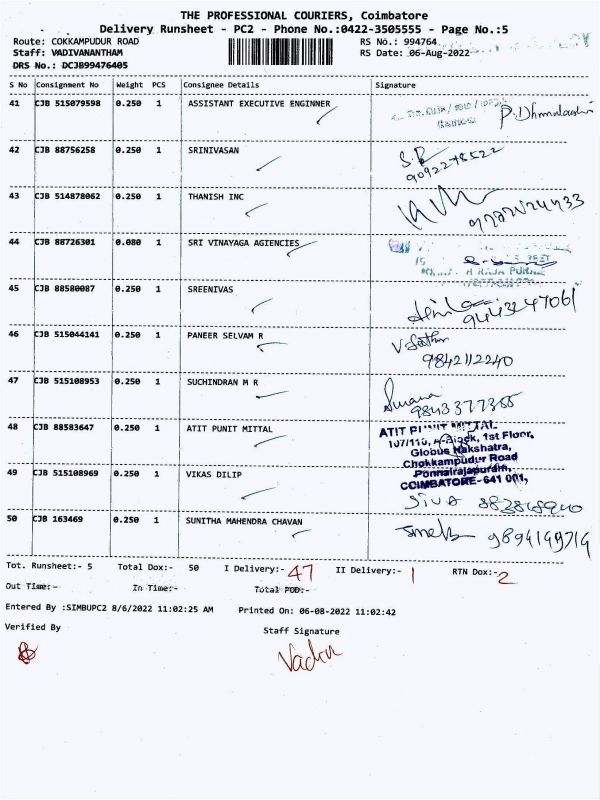 THE PROFESSIONAL COURIERS, Coimbatore
Delivery Runsheet - PC2 - Phone No.:0422-3505555 - Page No.:5
Route: COKKAMPUDUR ROAD RS No.: 994764
Staff: VADIVANANTHAM RS Date: 06-Aug-2022
DRS No.: DCJB99476405
S No Consignment No Weight PCS Consignee Details Signature
41 CJB 515079598 0.250 1 ASSISTANT EXECUTIVE ENGINNER
42 CJB 88756258 0.250 1 SRINIVASAN
9092278522
43 CJB 514878062 0.250 1 THANISH INC
44 CJB 88726301 0.080 1 SRI VINAYAGA AGIENCIES
45 CJB 88580087 0.250 1 SREENIVAS
9443247061
46 CJB 515044141 0.250 1 PANEER SELVAM R
9842112240
47 CJB 515108953 0.250 1 SUCHINDRAN M R
9843377355
48 CJB 88583647 0.250 1 ATIT PUNIT MITTAL ATIT PUNIT MITTAL
107/110, A-Block, 1st Floor,
Globus Nakshatra,
Chokkampudur Road
Ponnairajapuram,
COIMBATORE-641 001,
49 CJB 515108969 0.250 1 VIKAS DILIP
SIVA
50 CJB 163469 0.250 1 SUNITHA MAHENDRA CHAVAN
9894149714
Tot. Runsheet:- 5 Total Dox:- 50 I Delivery:- 47 II Delivery:- 1 RTN Dox:- 2
Out Time:- In Time:- Total POD:-
Entered By :SIMBUPC2 8/6/2022 11:02:25 AM Printed On: 06-08-2022 11:02:42
Verified By Staff Signature